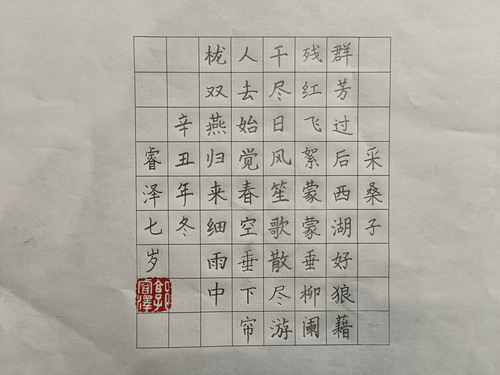 采桑子
群芳过后西湖好狼藉
残红飞絮蒙蒙垂柳阑
干尽日风笙歌散尽游
人去始觉春空垂下帘
栊双燕归来细雨中
辛丑年冬
睿泽七岁
睿澤